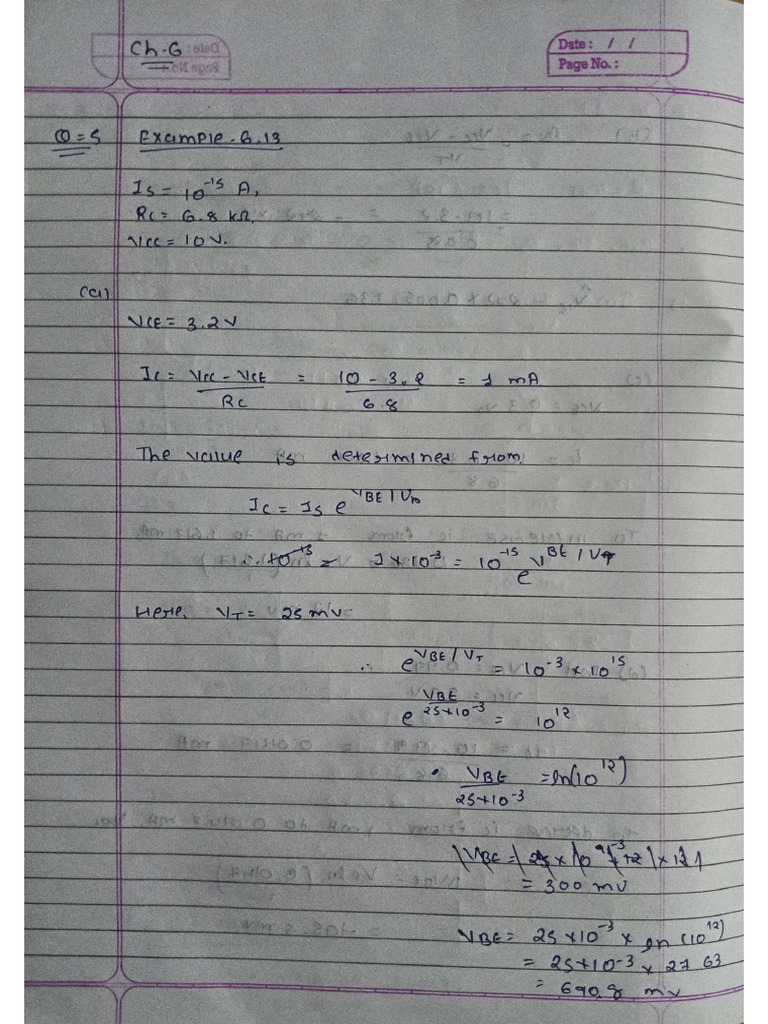 Ch-6
Date : / /
Page No. :
Q=5 Example-6.13
Is = 10^-15 A,
Rc = 6.8 kΩ,
Vcc = 10V.
(a)
VCE = 3.2V
Ic = Vcc - VCE / Rc = 10 - 3.2 / 6.8 = 1 mA
The value is determined from
Ic = Is e^VBE/VT
1×10^-3 = 10^-15 e^VBE/VT
Here, VT = 25 mV
∴ e^VBE/VT = 10^-3 × 10^15
e^VBE/25×10^-3 = 10^12
VBE / 25×10^-3 = ln(10^12)
= 300 mV
VBE = 25×10^-3 × ln(10^12)
= 25×10^-3 × 27 63
= 690.8 mV